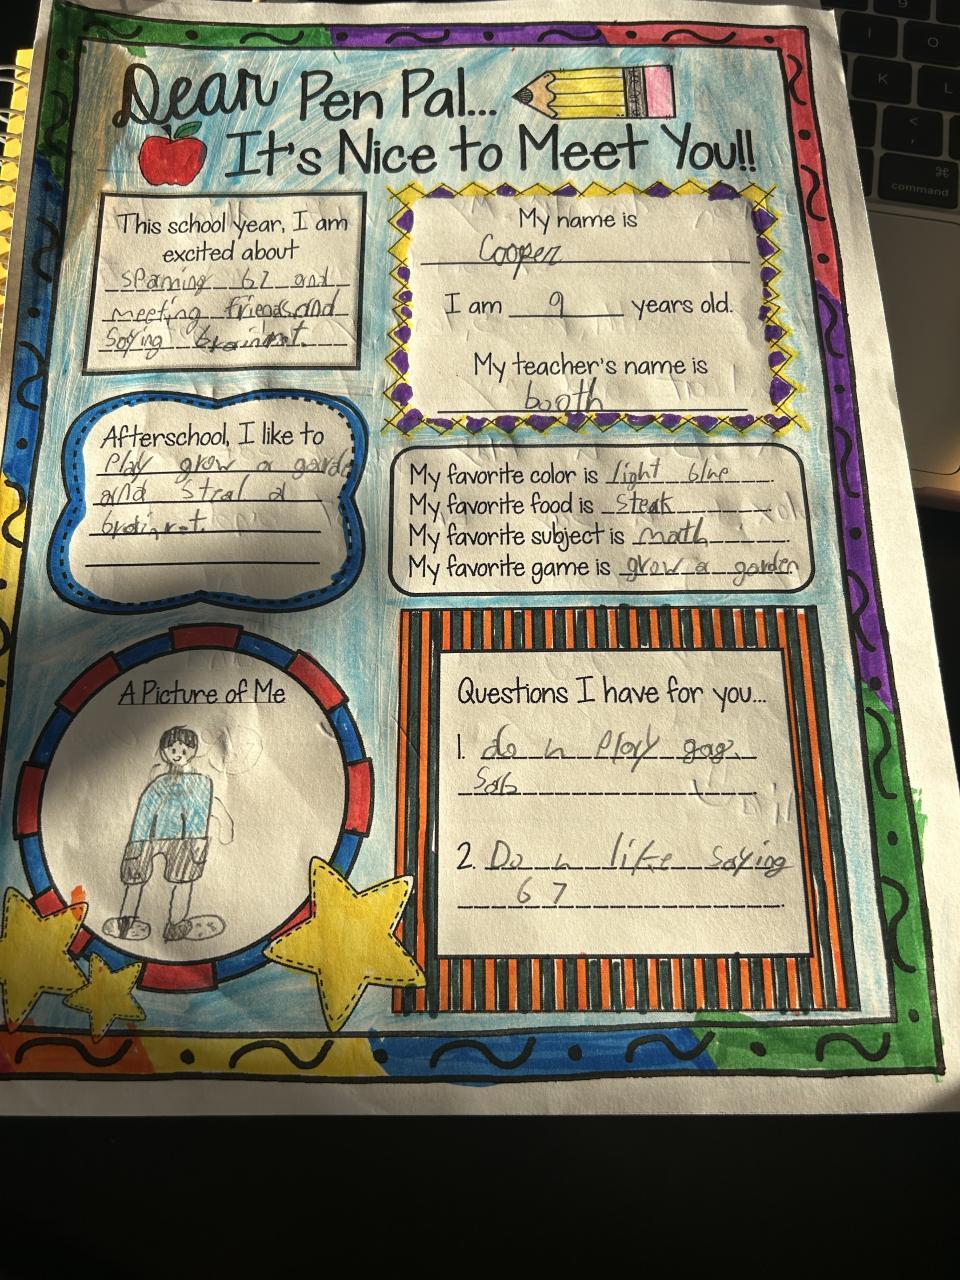 Dear Pen Pal...
It's Nice to Meet You!!
This school year, I am
excited about
spaming 67 and
meeting friends and
saying brainrot.
My name is
Cooper
I am 9 years old.
My teacher's name is
booth
Afterschool, I like to
Play grow a garden
and steal a
brainrot.
My favorite color is light blue.
My favorite food is steak.
My favorite subject is math.
My favorite game is grow a garden
A Picture of Me
Questions I have for you...
1. do u play gag.
Sab
2. Do u like saying
6 7
command
K
L
O
I
<
,